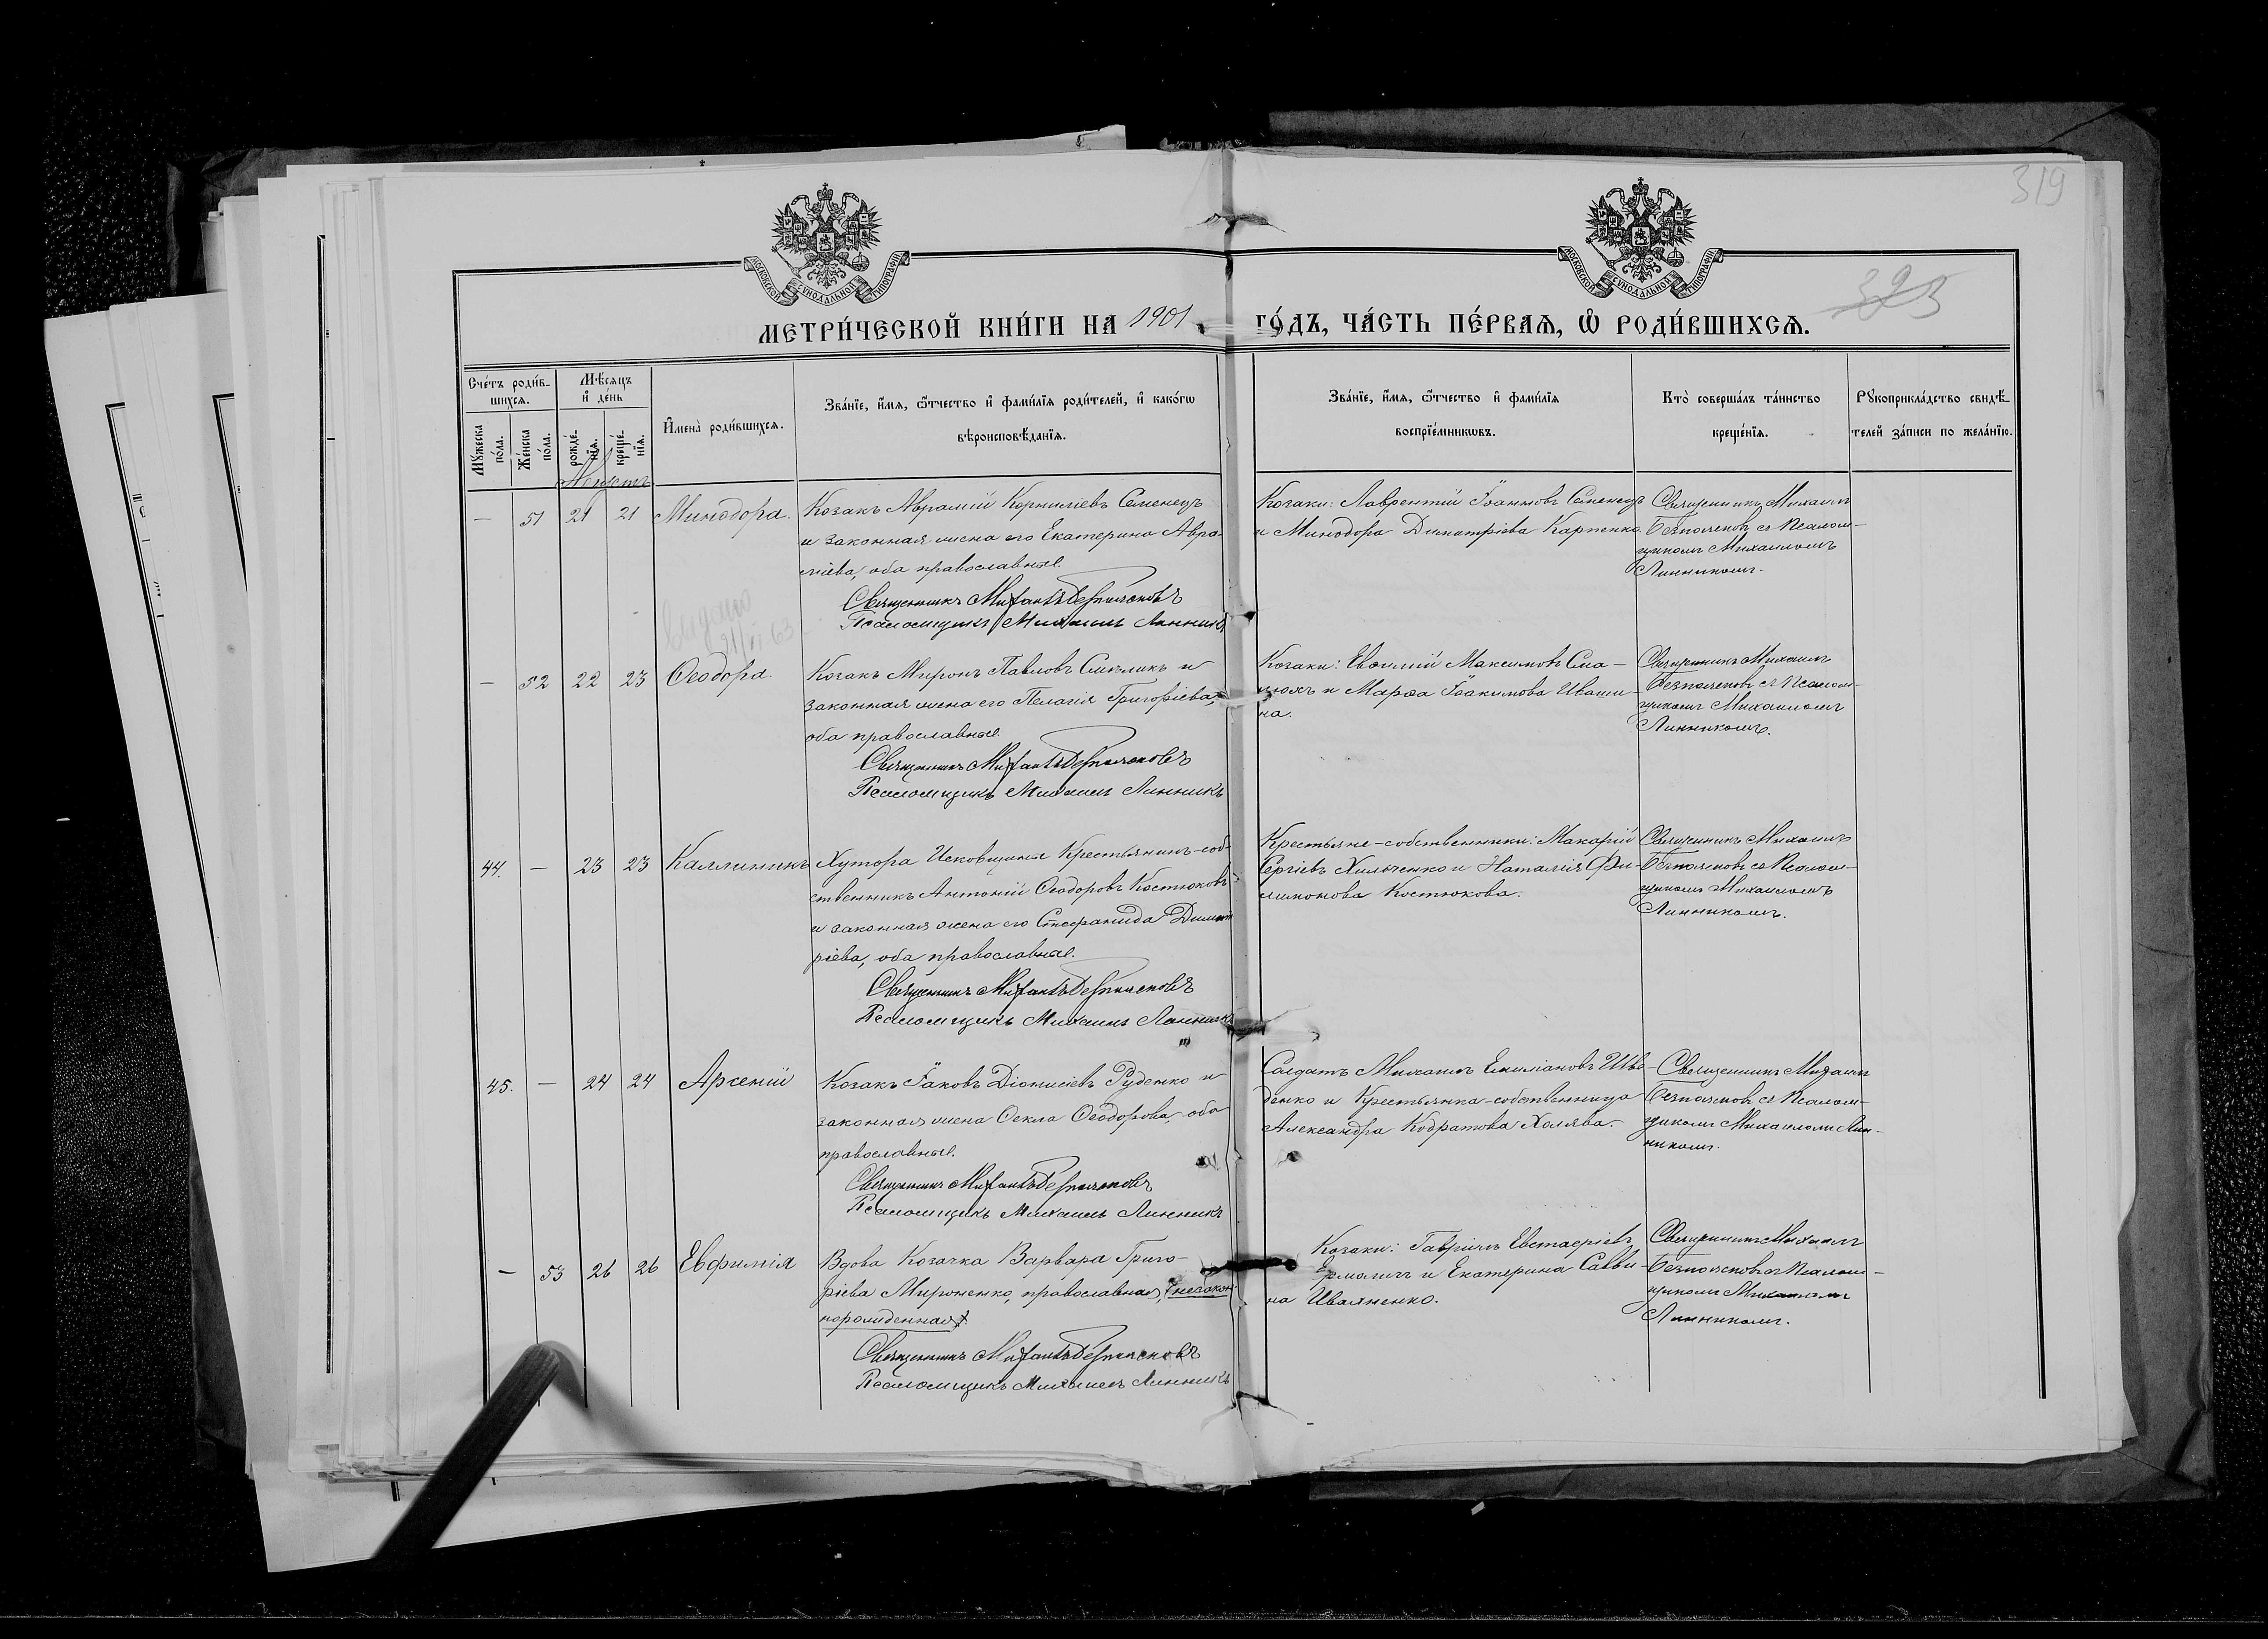 319
323
МОСКОВСКОЙ СѴНОДАЛЬНОЙ ТИПОГРАФІИ
МОСКОВСКОЙ СѴНОДАЛЬНОЙ ТИПОГРАФІИ
МЕТРИ́ЧЕСКОЙ КНИ́ГИ НА 1901 ГО́ДЪ, ЧА́СТЬ ПЕ́РВАѦ, Ѡ҆ РОДИ́ВШИХСѦ.
Сче́тъ роди́в-
шихсѧ.
Мꙋ́жеска по́ла.
Же́нска по́ла.
Мѣ́сѧцъ и҆ де́нь
рожде́-нїѧ.
креще́-нїѧ.
И҆мена̀ роди́вшихсѧ.
Зва́нїе, и҆́мѧ, ѻ҆́тчество и҆ фами́лїѧ роди́телей, и҆ како́гѡ
вѣроисповѣ́данїѧ.
Зва́нїе, и҆́мѧ, ѻ҆́тчество и҆ фами́лїѧ
воспрїе́мникѡвъ.
Кто̀ соверша́лъ та́инство
креще́нїѧ.
Рꙋкоприкла́дство свидѣ́-
телей за́писи по жела́нїю.
Августъ
— 51 21 21 Минодора.
Козакъ Аврамій Корниліевъ Семенецъ
и законная жена его Екатерина Авра-
міева, оба православные.
Священникъ Михаилъ Безпалчевъ
Псаломщикъ Михаилъ Линникъ
Козаки: Лаврентій Іоанновъ Семенецъ
и Минодора Димитріева Карпенко
Священникъ Михаилъ
съ Псалом-
щикомъ Михаиломъ
Линникомъ.
выдано
21/VI 63
— 52 22 23 Ѳеодора.
Козакъ Миронъ Павловъ Смѣликъ и
законная жена его Пелагія Григоріева,
оба православные.
Священникъ Михаилъ
Псаломщикъ Михаилъ Линникъ
Козаки: Евѳимій Максимовъ Сма-
и Марѳа Іоакимова Иваши-
на.
Священникъ Михаилъ
съ Псалом-
щикомъ Михаиломъ
Линникомъ.
44. — 23 23 Каллиникъ
Хутора Исковщины Крестьянинъ-соб-
ственникъ Антоній Ѳеодоровъ Костюковъ
и законная жена его Стефанида Димит
ріева, оба православные.
Священникъ Михаилъ
Псаломщикъ Михаилъ Линникъ
Крестьяне-собственники: Макарій
Сергіевъ Хильченко и Наталія Фи-
лимонова Костюкова.
Священникъ Михаилъ
съ Псалом-
щикомъ Михаиломъ
Линникомъ.
45. — 24 24 Арсеній
Козакъ Іаковъ Діонисіевъ Руденко и
законная жена Ѳекла Ѳеодорова, оба
православные.
Священникъ Михаилъ
Псаломщикъ Михаилъ Линникъ
Солдатъ Михаилъ Емиліановъ Шве-
денко и Крестьянка-собственница
Александра Кодратова Халява.
Священникъ Михаилъ
съ Псалом-
щикомъ Михаиломъ Лин-
никомъ.
— 53 26 26 Евфимія
Вдова Козачка Варвара Григо-
ріева Мироненко, православная, (незакон-
норожденная).
Священникъ Михаилъ
Псаломщикъ Михаилъ Линникъ
Козаки: Гавріилъ Евстаѳіевъ
Ермоличъ и Екатерина Савви-
на Иваненко.
Священникъ Михаилъ
съ Псалом-
щикомъ Михаиломъ
Линникомъ.